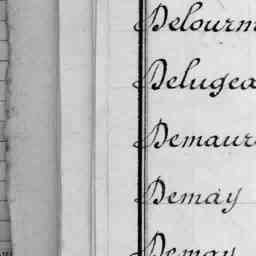 Delourm
Delugea
Demaur
Demay
Demay